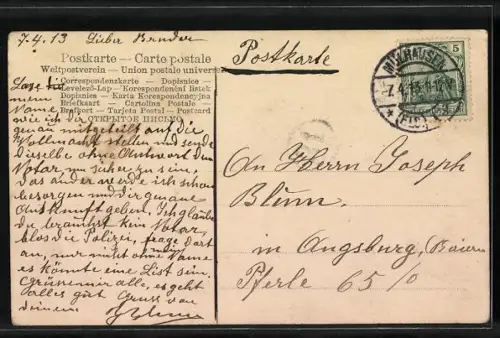 7.4.13 Lieber Bruder
Postkarte — Carte postale
Weltpostverein - Union postale universelle
Correspondenzkarte - Dopisnice -
Levelező-Lap - Korespondenční lístek
Dopisnica - Karta Korespondencyjna
Briefkaart - Cartolina Postale -
Brefkort - Tarjeta Postal - Postcard
ОТКРЫТОЕ ПИСЬМО
meinen
Name
wie ich dir
genau mitgeteilt auf die
Vollmacht stellen und sende
dieselbe ohne Antwort den
Notar um sicher zu sein,
das ander werde ich schon
besorgen und dir genaue
Auskunft geben, Ich glaube
du brauchst kein Notar,
blos die Polizei, frage dort
an, nur nicht ohne Name
es könnte eine List sein.
Grüsse mir alle, es geht
alles gut Gruss von
deinem
Postkarte
5
MÜLHAUSEN
7.4.13.11-12V
(ELS.)
An Herrn Joseph
Blum.
in Augsburg, Baiern
Pferle 65